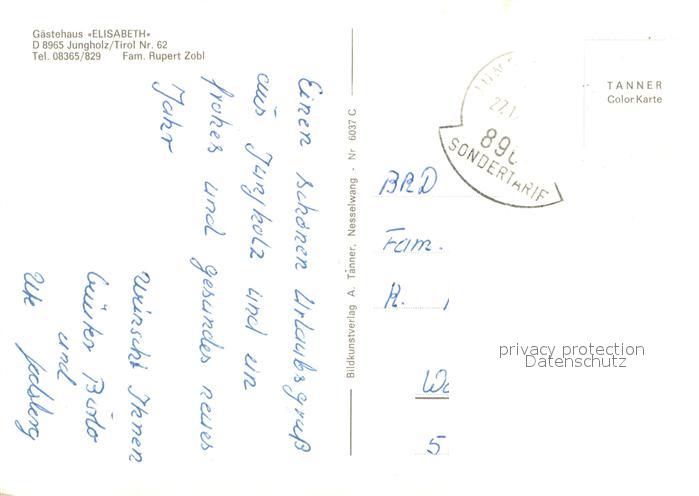 Gästehaus «ELISABETH»
D 8965 Jungholz/Tirol Nr. 62
Tel. 08365/829 Fam. Rupert Zobl
Einen schönen Urlaubsgruß
aus Jungholz und ein
frohes und gesundes neues
Jahr
wünscht Ihnen
Günter
und
Ute
Bildkunstverlag A. Tanner, Nesselwang - Nr 6037 C
TANNER
Color Karte
27.1
896
SONDERTARIF
BRD
Fam.
K.
5
privacy protection
Datenschutz